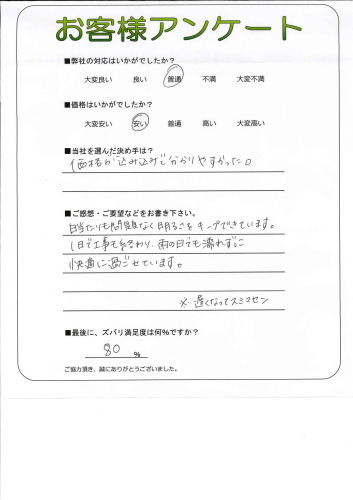 お客様アンケート
■弊社の対応はいかがでしたか？
大変良い 良い 普通 不満 大変不満
■価格はいかがでしたか？
大変安い 安い 普通 高い 大変高い
■当社を選んだ決め手は？
価格が込み込みで分かりやすかった。
■ご感想・ご要望などをお書き下さい。
日当たりも問題なく明るさをキープできています。
1日で工事も終わり、雨の日でも濡れずに
快適に過ごせています。
※遅くなってスミマセン
■最後に、ズバリ満足度は何%ですか？
80 %
ご協力頂き、誠にありがとうございました。